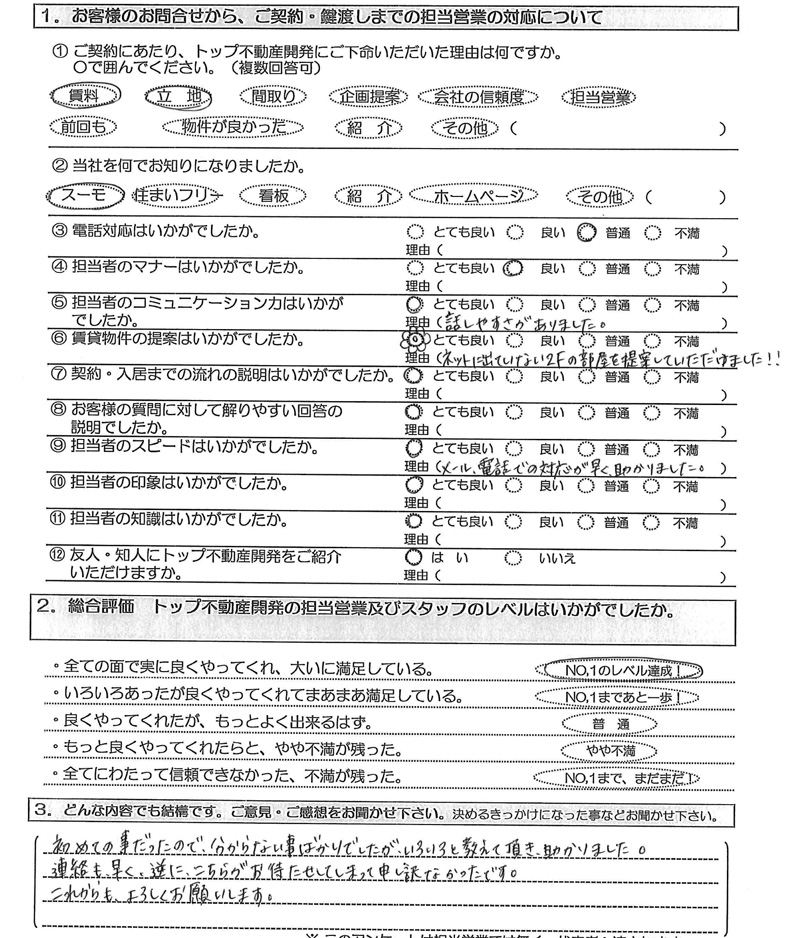 1．お客様のお問合せから、ご契約・鍵渡しまでの担当営業の対応について
① ご契約にあたり、トップ不動産開発にご下命いただいた理由は何ですか。
〇で囲んでください。（複数回答可）
賃料 立 地 間取り 企画提案 会社の信頼度 担当営業
前回も 物件が良かった 紹 介 その他 （ ）
② 当社を何でお知りになりましたか。
スーモ 住まいフリー 看板 紹 介 ホームページ その他 （ ）
③ 電話対応はいかがでしたか。 とても良い 良い 普通 不満
理由（ ）
④ 担当者のマナーはいかがでしたか。 とても良い 良い 普通 不満
理由（ ）
⑤ 担当者のコミュニケーション力はいかが とても良い 良い 普通 不満
でしたか。 理由（話しやすさがありました。
⑥ 賃貸物件の提案はいかがでしたか。 とても良い 良い 普通 不満
理由（ネットに出ていない2Fの部屋を提案していただけました!!
⑦ 契約・入居までの流れの説明はいかがでしたか。 とても良い 良い 普通 不満
理由（ ）
⑧ お客様の質問に対して解りやすい回答の とても良い 良い 普通 不満
説明でしたか。 理由（ ）
⑨ 担当者のスピードはいかがでしたか。 とても良い 良い 普通 不満
理由（メール、電話での対応が早く、助かりました。）
⑩ 担当者の印象はいかがでしたか。 とても良い 良い 普通 不満
理由（ ）
⑪ 担当者の知識はいかがでしたか。 とても良い 良い 普通 不満
理由（ ）
⑫ 友人・知人にトップ不動産開発をご紹介 は い いいえ
いただけますか。 理由（ ）
2．総合評価 トップ不動産開発の担当営業及びスタッフのレベルはいかがでしたか。
・全ての面で実に良くやってくれ、大いに満足している。 NO,1のレベル達成！
・いろいろあったが良くやってくれてまあまあ満足している。 NO,1まであと一歩！
・良くやってくれたが、もっとよく出来るはず。 普 通
・もっと良くやってくれたらと、やや不満が残った。 やや不満
・全てにわたって信頼できなかった、不満が残った。 NO,1まで、まだまだ！
3．どんな内容でも結構です。ご意見・ご感想をお聞かせ下さい。決めるきっかけになった事などお聞かせ下さい。
初めての事だったので、分からない事ばかりでしたが、いろいろと教えて頂き、助かりました。
連絡も早く、逆に、こちらがお待たせしてしまって申し訳なかったです。
これからも、よろしくお願いします。